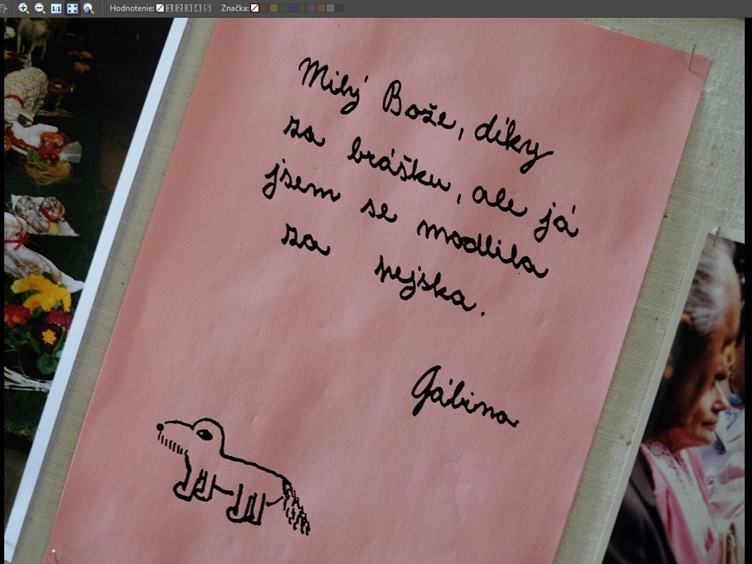 Hodnotenie: 1 2 3 4 5 Značka:
Milý Bože, díky
za brášku, ale já
jsem se modlila
za pejska.
Gábina